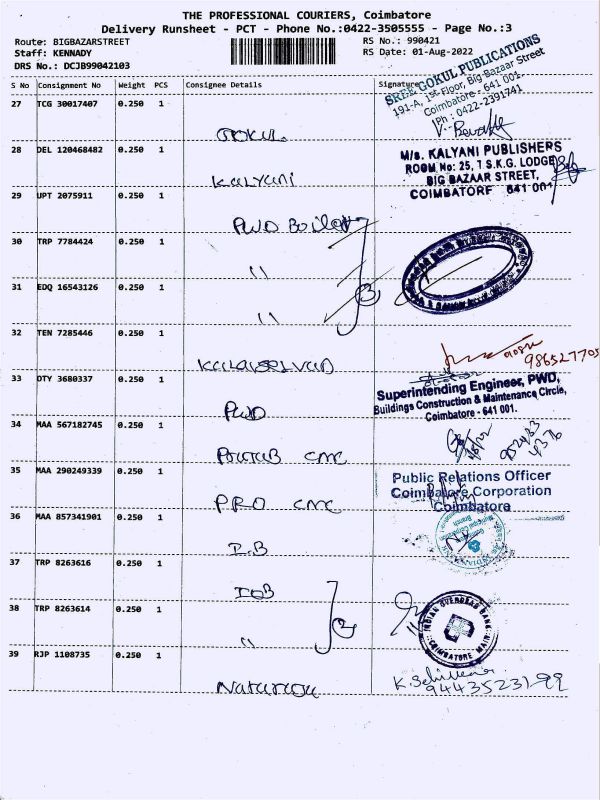 THE PROFESSIONAL COURIERS, Coimbatore
Delivery Runsheet - PCT - Phone No.:0422-3505555 - Page No.:3
Route: BIGBAZARSTREET RS No.: 990421
Staff: KENNADY RS Date: 01-Aug-2022
DRS No.: DCJB99042103
S No Consignment No Weight PCS Consignee Details Signature
SREE GOKUL PUBLICATIONS
191-A, 1st Floor, Big Bazaar Street
Coimbatore - 641 001.
Ph : 0422-2391741
27 TCG 30017407 0.250 1
GOKUL
28 DEL 120468482 0.250 1
M/s. KALYANI PUBLISHERS
ROOM No: 25, T S.K.G. LODGE
BIG BAZAAR STREET,
COIMBATORE 641 001
Kalyani
29 UPT 2075911 0.250 1
PWD
30 TRP 7784424 0.250 1
"
31 EDQ 16543126 0.250 1
"
32 TEN 7285446 0.250 1
33 OTY 3680337 0.250 1
Superintending Engineer, PWD,
Buildings Construction & Maintenance Circle,
Coimbatore - 641 001.
PWD
34 MAA 567182745 0.250 1
CMC
35 MAA 290249339 0.250 1
Public Relations Officer
Coimbatore Corporation
Coimbatore
PRO CMC
36 MAA 857341901 0.250 1
I.B
37 TRP 8263616 0.250 1
IOB
38 TRP 8263614 0.250 1
INDIAN OVERSEAS BANK
COIMBATORE MAIN
"
39 RJP 1108735 0.250 1